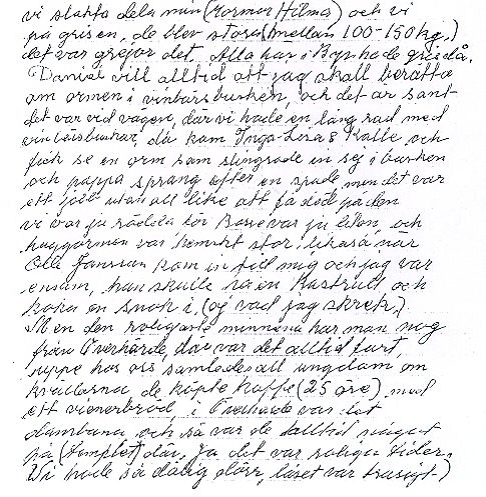 vi skaffa dela min (farmor Hilma) och vi
på grisen, de blev stora (mellan 100-150 kg.)
det var grejor det. Alla har i Byn hade gris då.
Daniel vill alltid att jag skall berätta
om ormen i vinbärsbusken, och det är sant
det var vid vägen, där vi hade en lång rad med
vinbärsbuskar, då kom Inga-Lisa & Kalle och
fick se en orm som slingrade in sej i busken
och pappa sprang efter en spade, men det var
ett jobb utan all like att få död på den
vi var ju rädda för Basse var ju liten, och
huggormen var hemskt stor, likaså när
Olle Jansson kom in till mig och jag var
ensam, han skulle ha en kastrull och
koka en snok i, (oj vad jag skrek.)
Men den roligaste minnena har man nog
från Överhärde, där var det alltid fart,
uppe hos oss samlades all ungdom om
kvällarna de köpte kaffe (25 öre) med
ett wienerbröd, i Överhärde var det
dansbana, och så var de alltid något
på (templet) där, ja det var roliga tider.
Vi hade så dålig dörr, låset var trasigt)